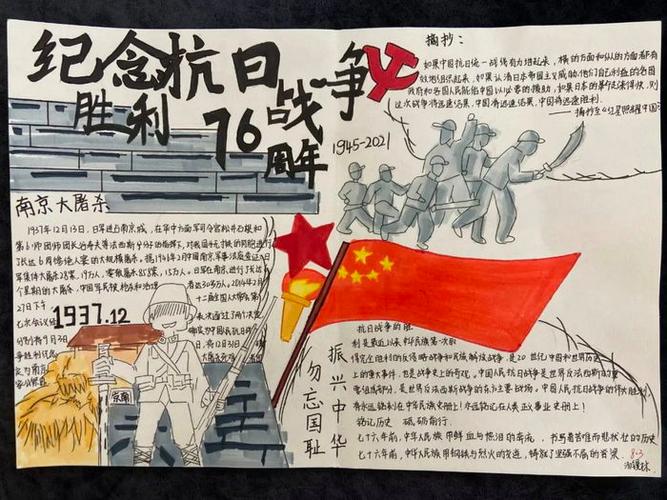 纪念抗日战争
胜利76周年
1945-2021
摘抄：
如果中国抗日统一战线有力组起来，横的方面和纵的方面都有
效地组织起来，如果认清日本帝国主义威胁他们自己利益的各国
政府和各国人民能给中国以必要的援助，如果日本的革命起来得快，则
这次战争将迅速结束，中国将迅速胜利。
——摘抄至《红星照耀中国》
南京大屠杀
1937年12月13日，日军进占南京城，在华中方面军司令官松井石根和
第6师团师团长谷寿夫等法西斯分子的指挥下，对我国手无寸铁的同胞进行
了长达6周惨绝人寰的大规模屠杀。
日军集体大屠杀28案，19万人，零散屠杀858案，15万人。日军在南京进行了长达
个星期的大屠杀，中国军民被枪杀和活埋
者达30多万人。2014年2月
27日下午
十二届全国人大常委
七次会议
表次通过了两个决定
1937.12
分别将9月3日
争胜利纪念
南京
勿忘国耻
振兴中华
抗日战争的胜
利是最近以来中华民族第一次的
得完全胜利的反侵略战争和民族解放战争，是20世纪中国和世界历史
上的重大事件，也是战争史上的奇观，中国人民抗日战争是世界反法西斯战争的重
要组成部分，是世界反法西斯战争的东方主要战场，中国人民抗日战争的伟大胜利
将永远铭刻在中华民族史册上！永远铭记在人类正义事业史册上！
铭记历史 砥砺前行
七十六年前，中华人民族用鲜血与热泪的奔流，书写着苦难而悲状壮的历史
七十六年前，中华人民族用钢铁与烈火的交迸，铸就了坚强不屈的脊梁
8.3